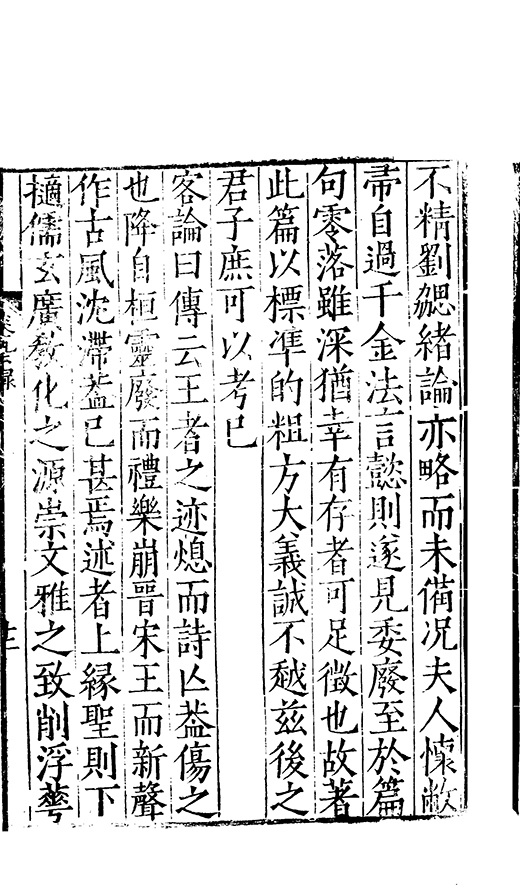 不精劉勰緒論亦略而未備况夫人懷敝
帚自過千金法言懿則遂見委廢至於篇
句零落雖深猶幸有存者可足徵也故著
此篇以標準的粗方大義誠不越兹後之
君子庶可以考已
客論曰傳云王者之迹熄而詩亡葢傷之
也降自桓靈廢而禮樂崩晉宋王而新聲
作古風沈滯葢已甚焉述者上緣聖則下
擿儒玄廣教化之源崇文雅之致削浮蕚